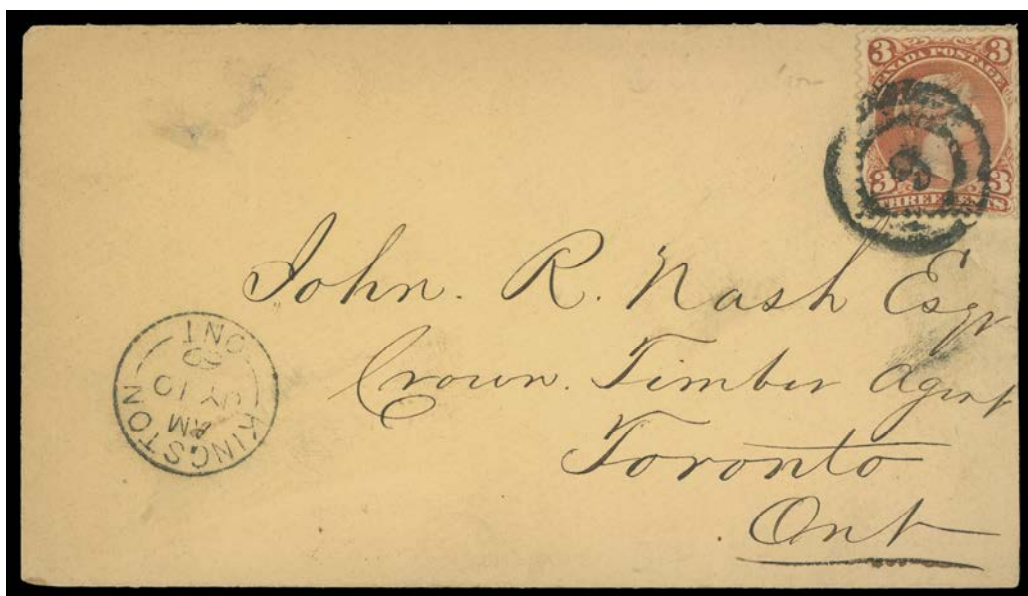 3 3
CANADA POSTAGE
9
3 3
THREE CENTS
John. R. Nash Esqr
Crown. Timber Agent
Toronto
Ont
KINGSTON
AM
JY 10
ONT